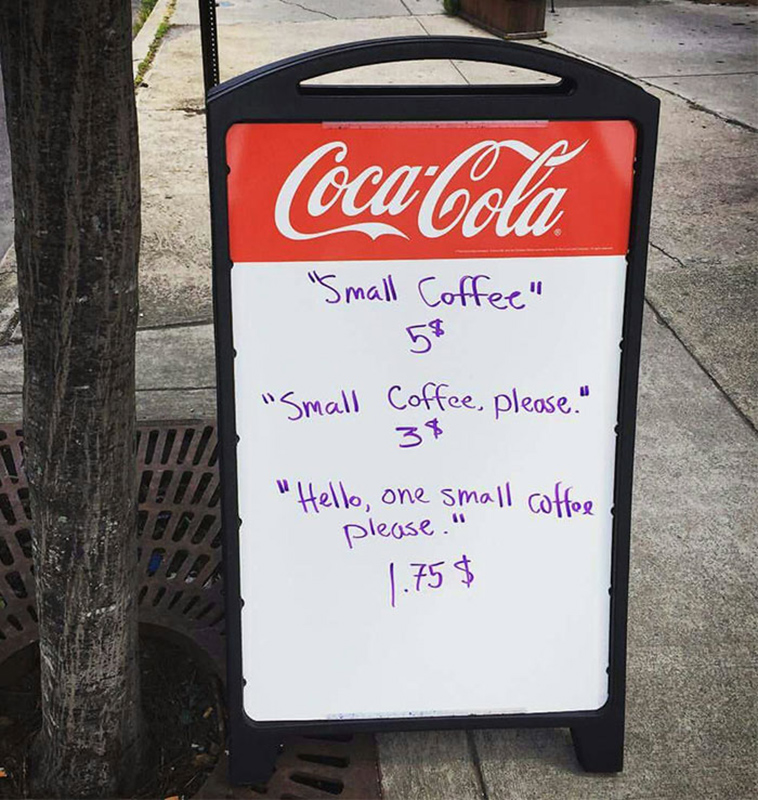 Coca-Cola
"Small Coffee"
5$
"Small Coffee, please."
3$
"Hello, one small coffee
please."
1.75 $